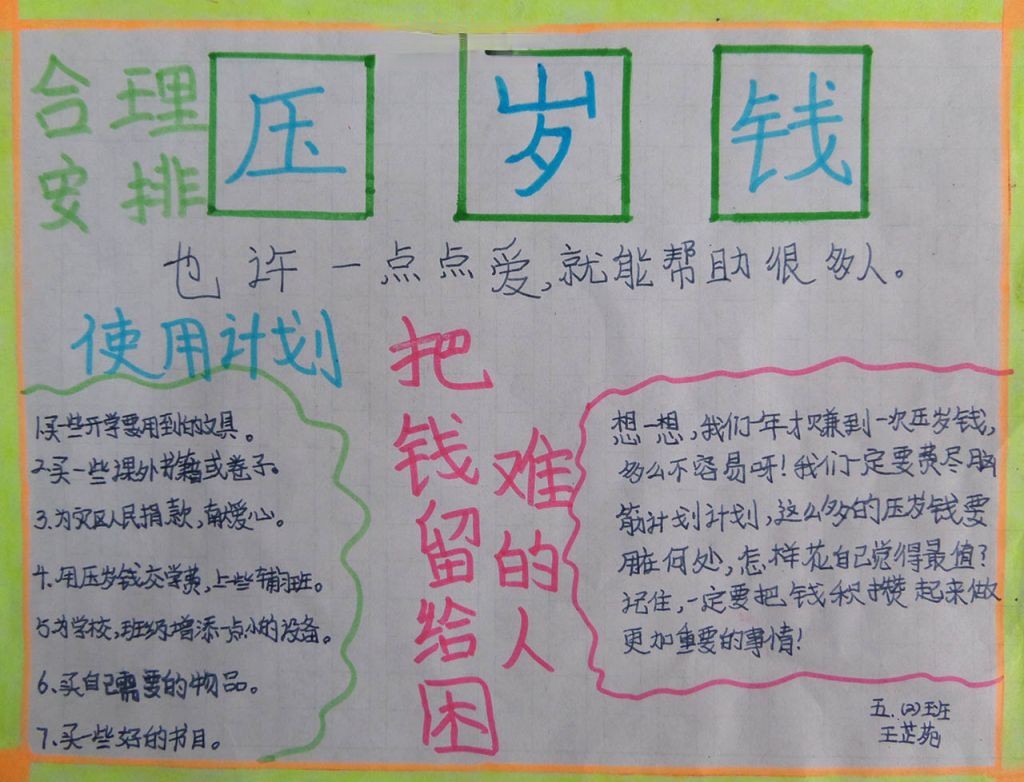 合理
安排
压岁钱
也许一点点爱,就能帮助很多人。
使用计划
1.买一些开学要用到的文具。
2.买一些课外书籍或卷子。
3.为灾区人民捐款,献爱心。
4.用压岁钱交学费,上些辅班。
5.为学校,班级增添一点小的设备。
6.买自己需要的物品。
7.买一些好的书目。
把钱留给困
难的人
想一想,我们一年才赚到一次压岁钱,
多么不容易呀!我们一定要费尽脑
筋计划计划,这么多的压岁钱要
用在何处,怎样花自己觉得最值?
记住,一定要把钱积攒起来做
更加重要的事情!
五.(2)班
王芷苑